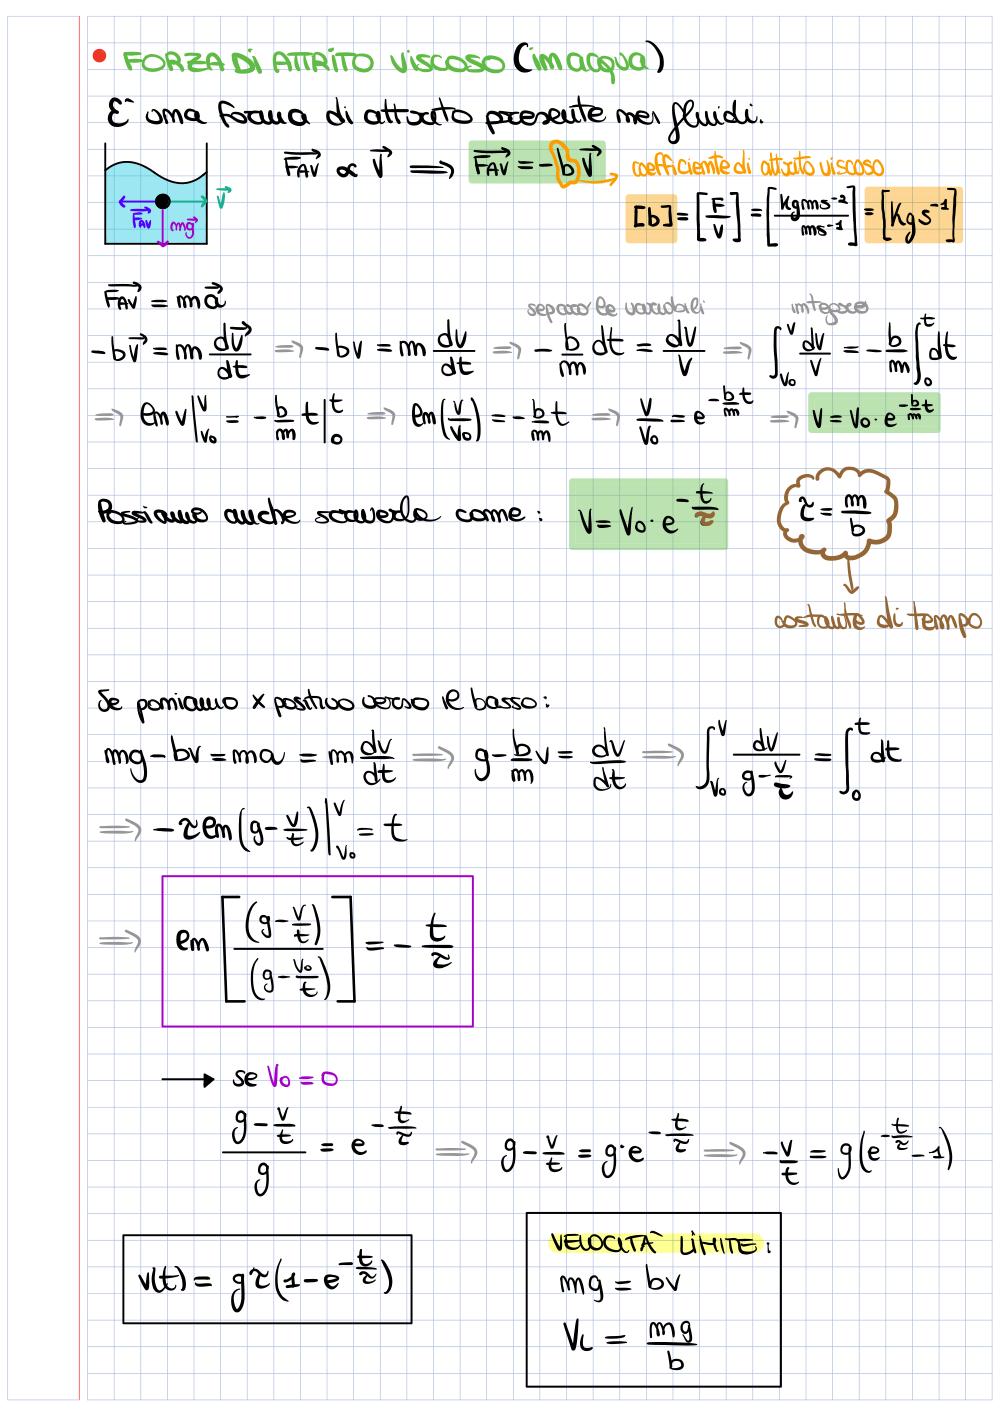 • FORZA DI ATTRITO VISCOSO (in acqua)
E' una forma di attrito presente nei fluidi.
F⃗AV ∝ v⃗ ⟹ F⃗AV = -b v⃗
coefficiente di attrito viscoso
F⃗AV
v⃗
mg⃗
[b] = [F/V] = [Kgms⁻²/ms⁻¹] = [Kgs⁻¹]
F⃗AV = ma⃗
separo le variabili
integro
-bv⃗ = m dv⃗/dt ⟹ -bv = m dv/dt ⟹ -b/m dt = dv/v ⟹ ∫_{v₀}^{v} dv/v = -b/m ∫_{0}^{t} dt
⟹ ln v |_{v₀}^{v} = -b/m t |_{0}^{t} ⟹ ln(v/v₀) = -b/m t ⟹ v/v₀ = e^{-b/m t} ⟹ v = v₀ · e^{-b/m t}
Possiamo anche scriverla come : v = v₀ · e^{-t/τ}
τ = m/b
costante di tempo
Se poniamo x positivo verso il basso:
mg - bv = ma = m dv/dt ⟹ g - b/m v = dv/dt ⟹ ∫_{v₀}^{v} dv/(g - v/τ) = ∫_{0}^{t} dt
⟹ -τ ln(g - v/t) |_{v₀}^{v} = t
⟹ ln [(g - v/t)/(g - v₀/t)] = - t/τ
⟶ se v₀ = 0
(g - v/t)/g = e^{-t/τ} ⟹ g - v/t = g·e^{-t/τ} ⟹ -v/t = g(e^{-t/τ} - 1)
v(t) = gτ(1 - e^{-t/τ})
VELOCITÀ LIMITE:
mg = bv
VL = mg/b